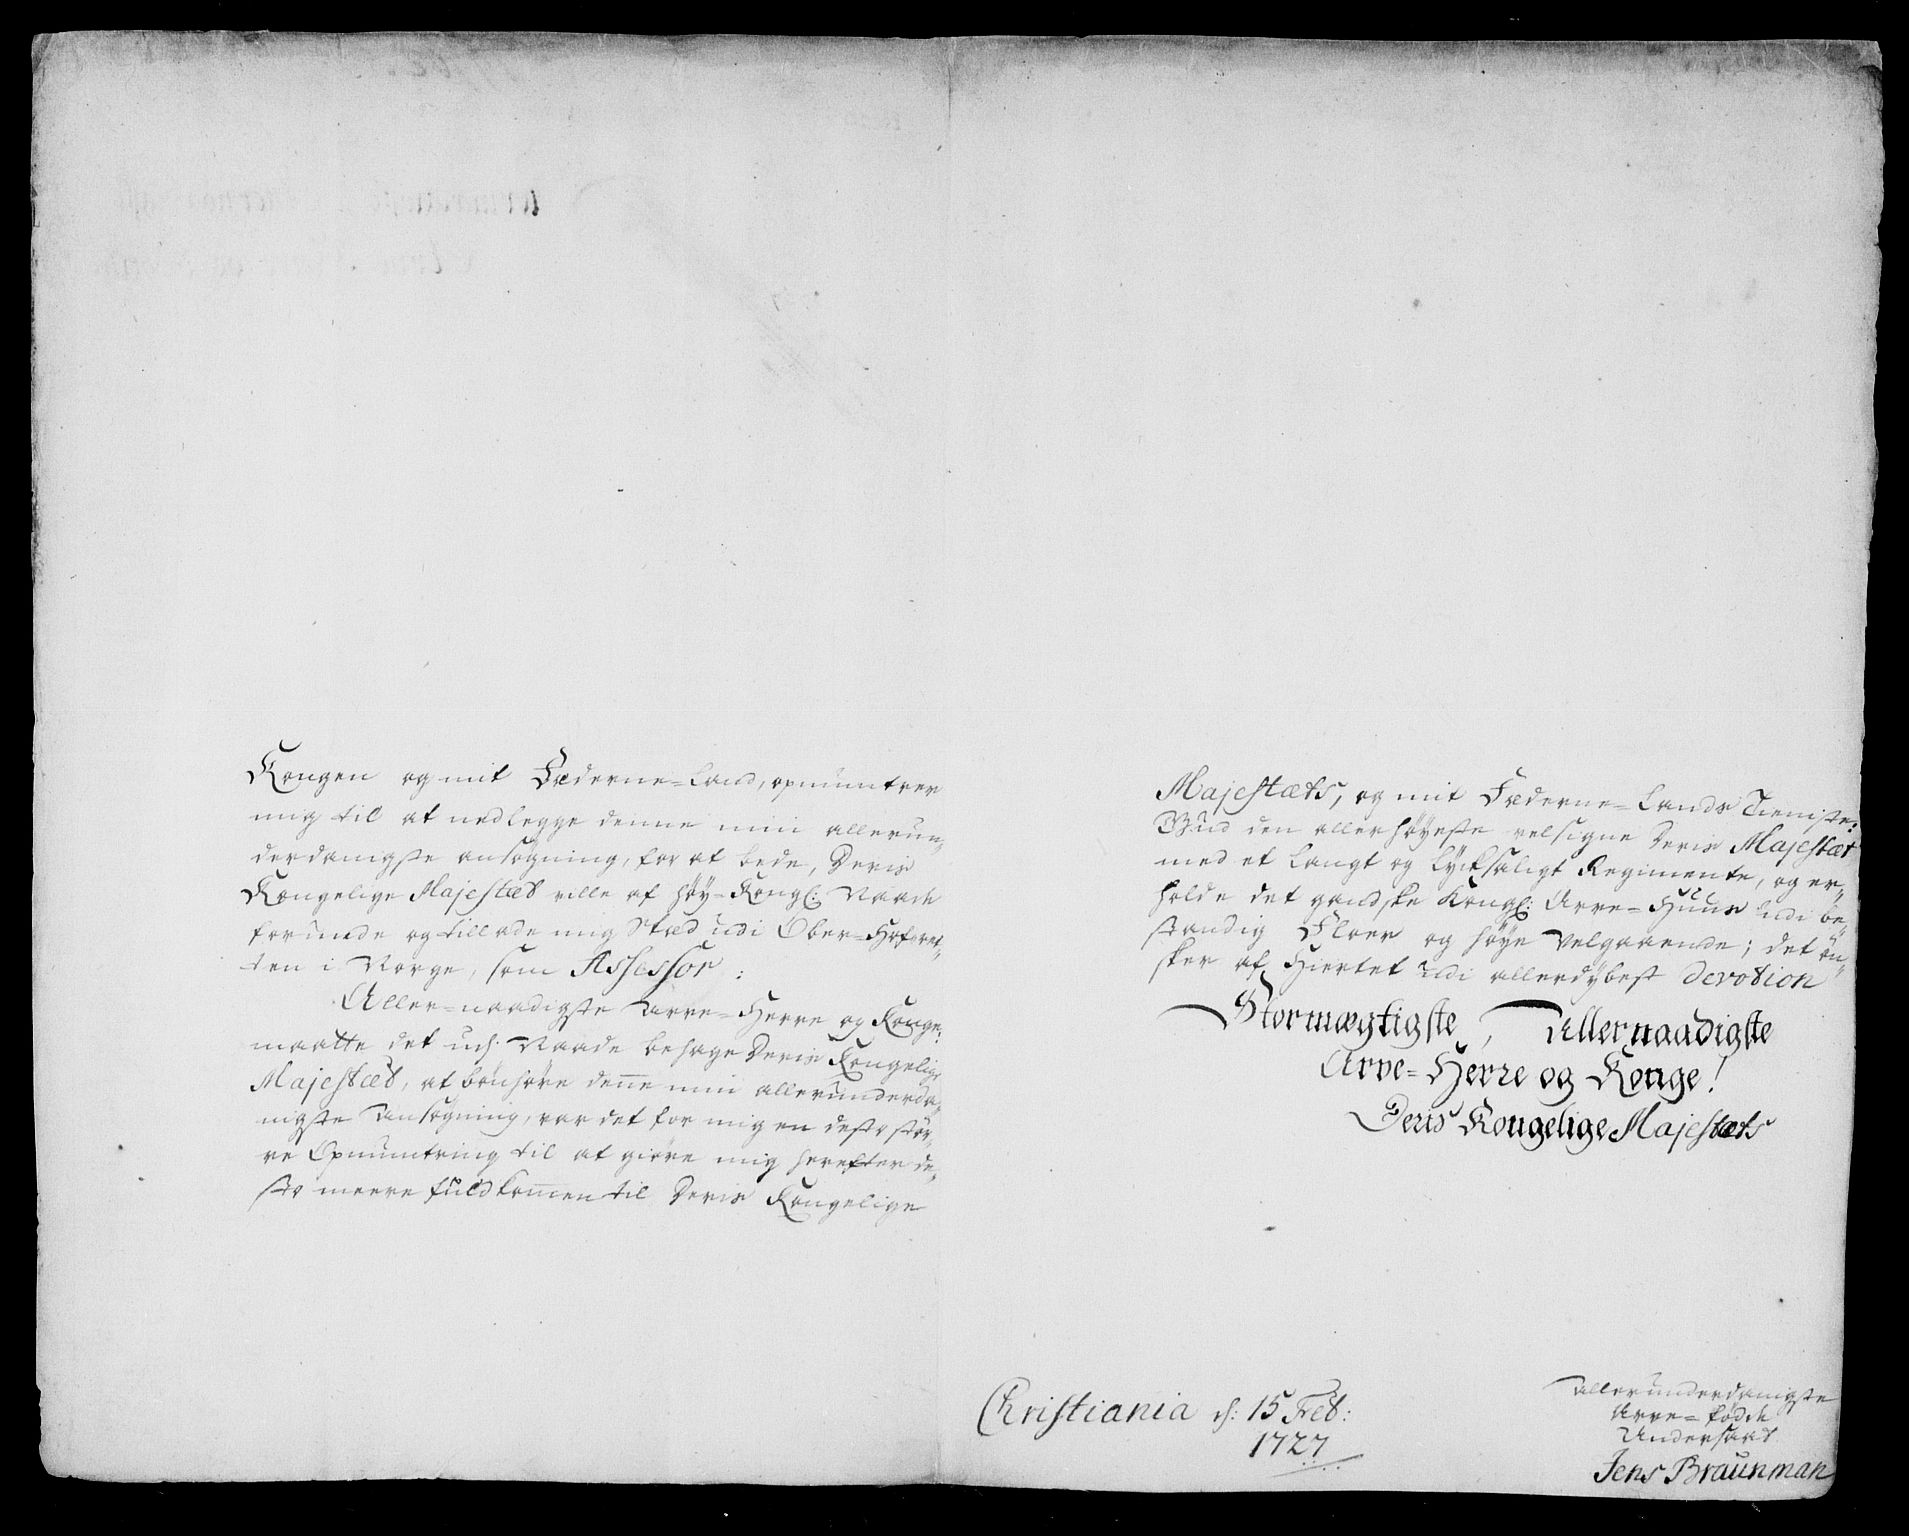 Kongen og mit Fæderne=Land, opmuntrer
mig til at nedlegge denne min allerun-
derdanigste ansøgning, for at bede, Deris
Kongelige Majestæt ville af høy=Kongl: Naade
forunde og tillade mig Stæd udi Ober-Hofret-
ten i Norge, som Assessor:
Aller=naadigste Arve=Herre og Konge:
maatte det udj Naade behage Deris Kongelige
Majestæt, at bønhøre deñe min allerunderda-
nigste Ansøgning, var det for mig en desto stør-
re Opmuntring til at giøre mig herefter de-
sto meere fuldkom̄en til Deris Kongelige
Majestæts, og mit Fæderne=Lands Tieniste:
Gud den allerhøyeste velsigne Deris Majestæt
med et langt og lycksaligt Regimente, og er-
holde det gandske Kongl: Arve=Huus udi be-
standig Floer og høye Velgaaende; det øn-
sker af Hiertet udi allerdybest devotion
Stormægtigste, Allernaadigste
Arve=Herre og Konge!
Deris Kongelige Majestæts
Christiania d: 15 Feb:
1727
allerunderdanigste
Arve=fødde
Undersaat
Jens Braunman